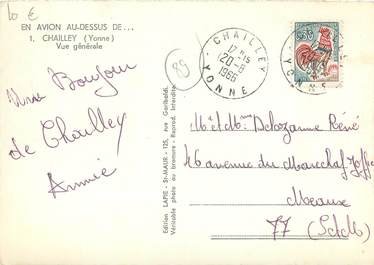 10 €
EN AVION AU-DESSUS DE...
1. CHAILLEY (Yonne)
Vue générale
CHAILLEY
17 H 15
20-8
1966
YONNE
89
Bonjour
de Chailley
Annie
Edition LAPIE - St-MAUR - 125, rue Garibaldi.
Véritable photo au bromure - Reprod. Interdite
M et Mme Delozanne Réné
46 avenue du Marechal Joffre
Meaux
77 (S et M)